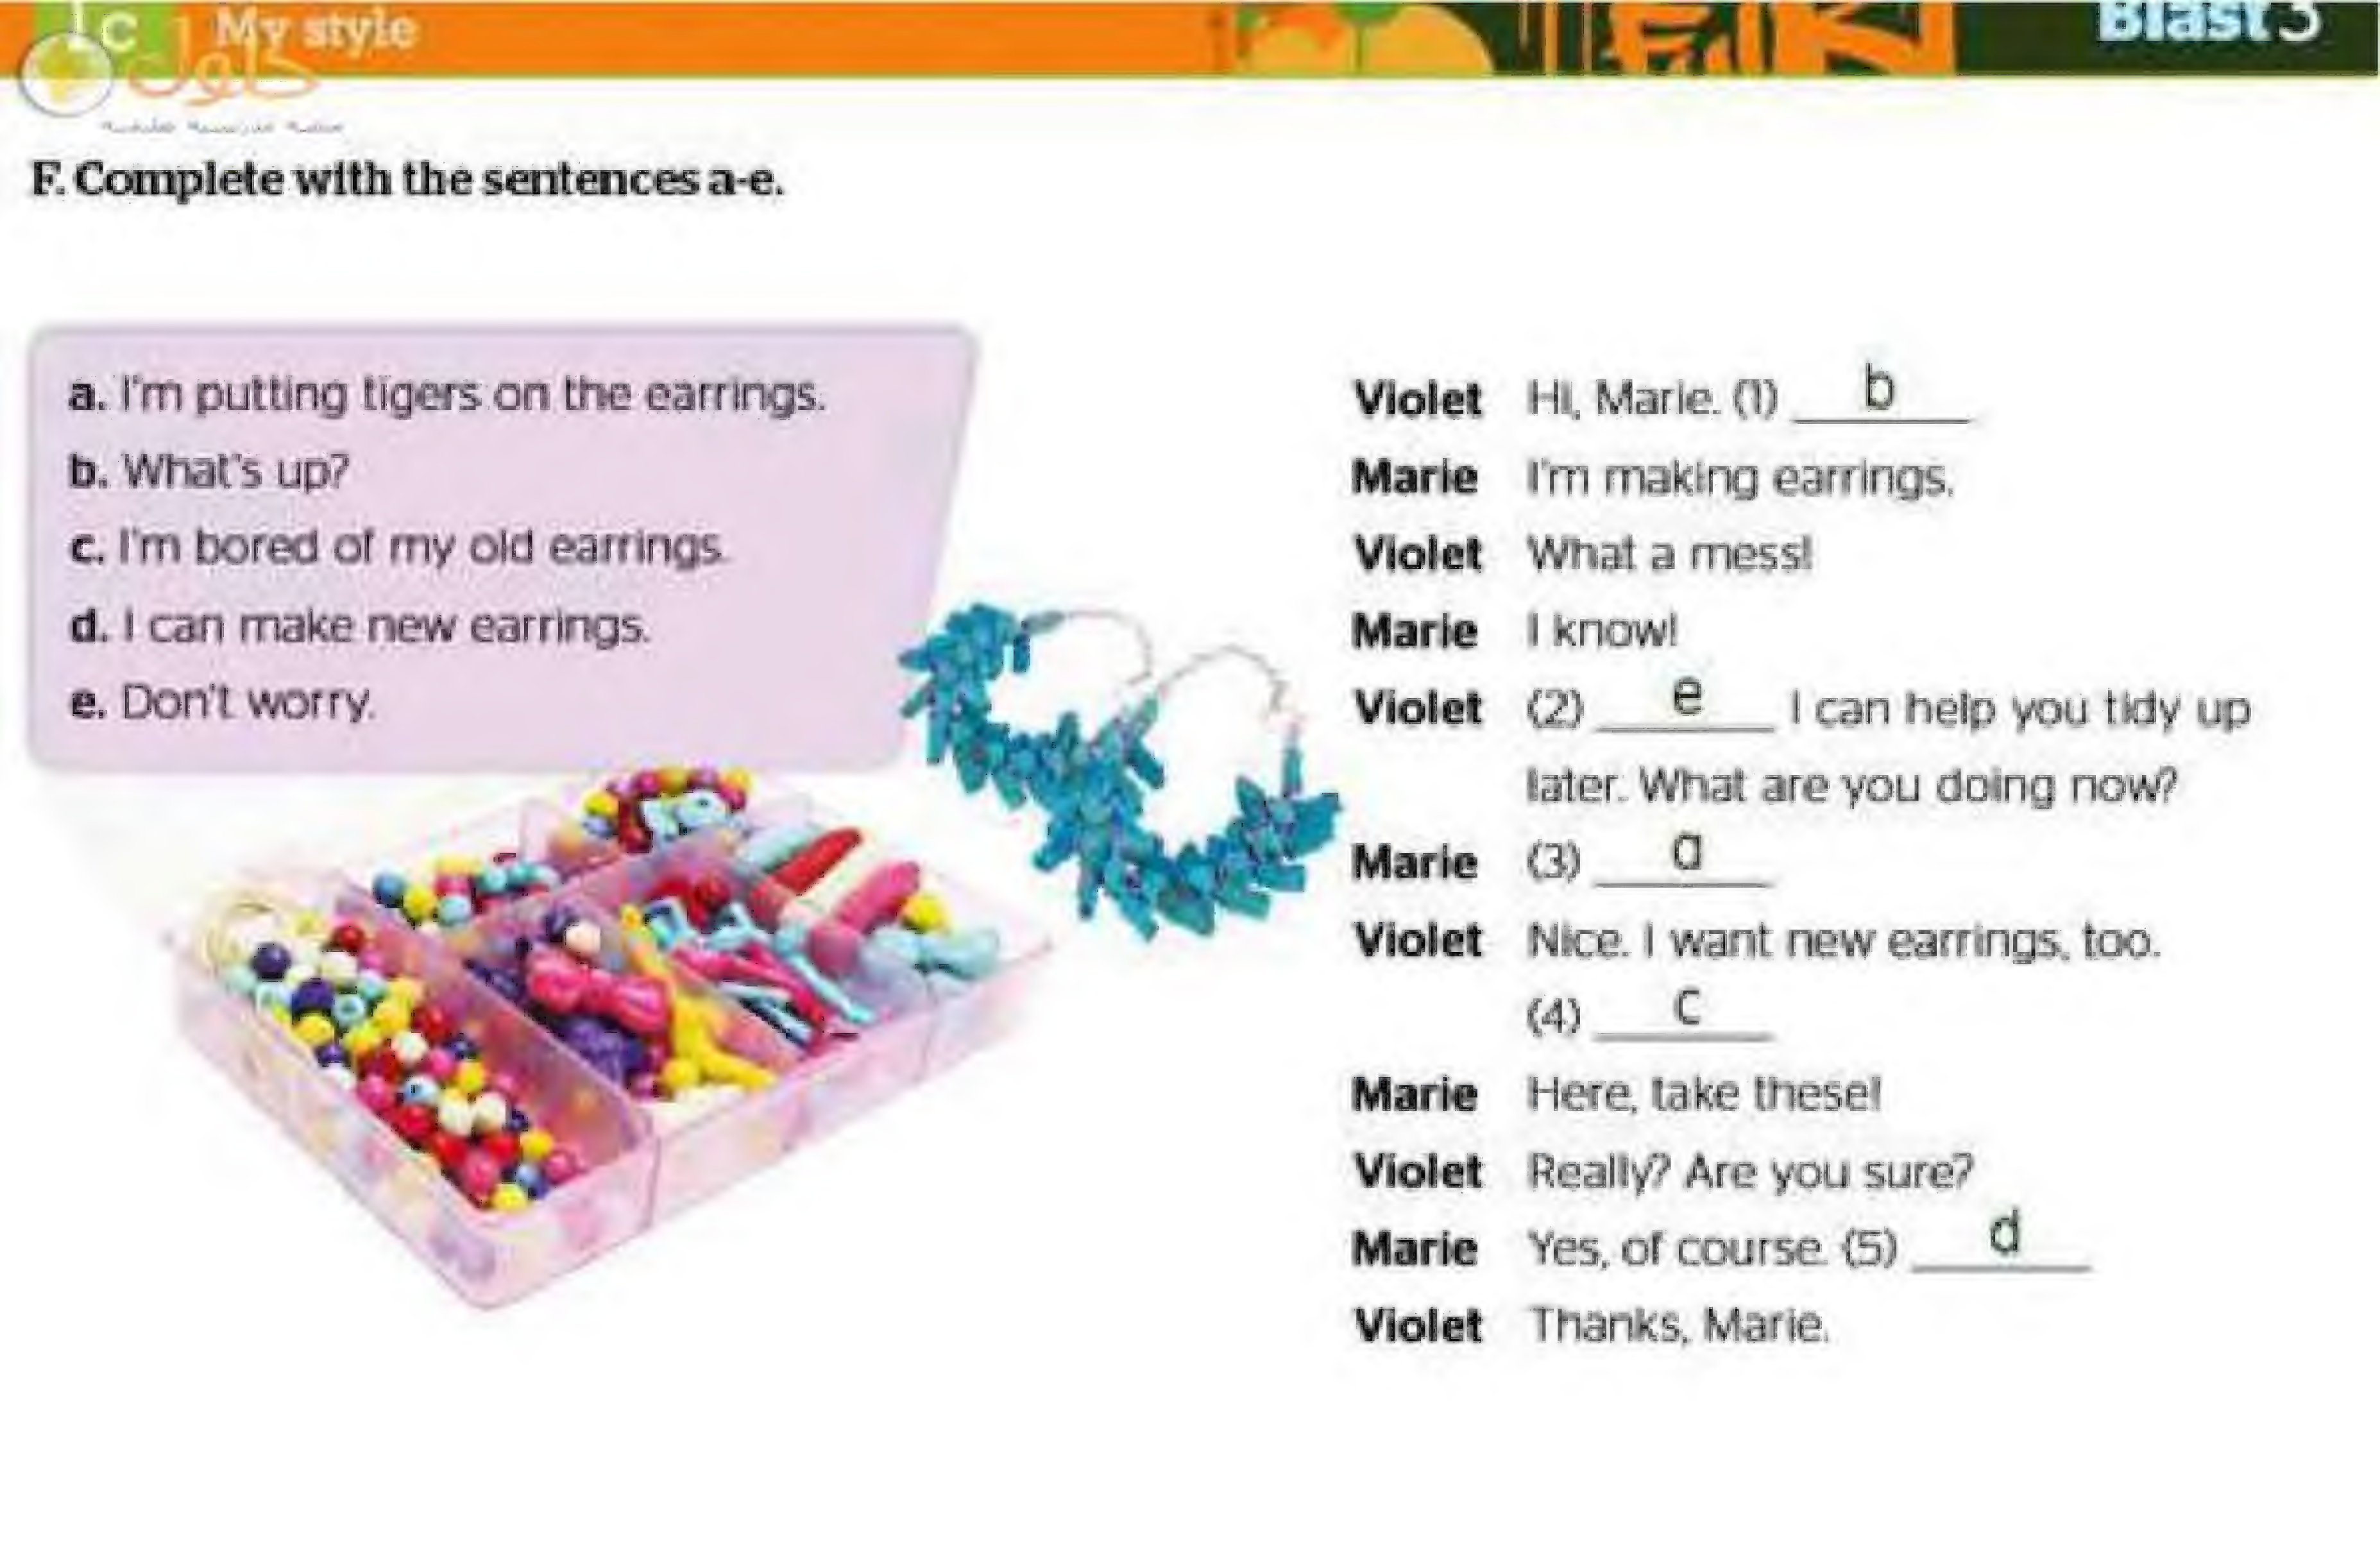 1c My style
Blast 3
حلول
F. Complete with the sentences a-e.
a. I'm putting tigers on the earrings.
b. What's up?
c. I'm bored of my old earrings.
d. I can make new earrings.
e. Don't worry.
Violet Hi, Marie. (1) b
Marie I'm making earrings.
Violet What a mess!
Marie I know!
Violet (2) e I can help you tidy up
later. What are you doing now?
Marie (3) a
Violet Nice. I want new earrings, too.
(4) c
Marie Here, take these!
Violet Really? Are you sure?
Marie Yes, of course. (5) d
Violet Thanks, Marie.